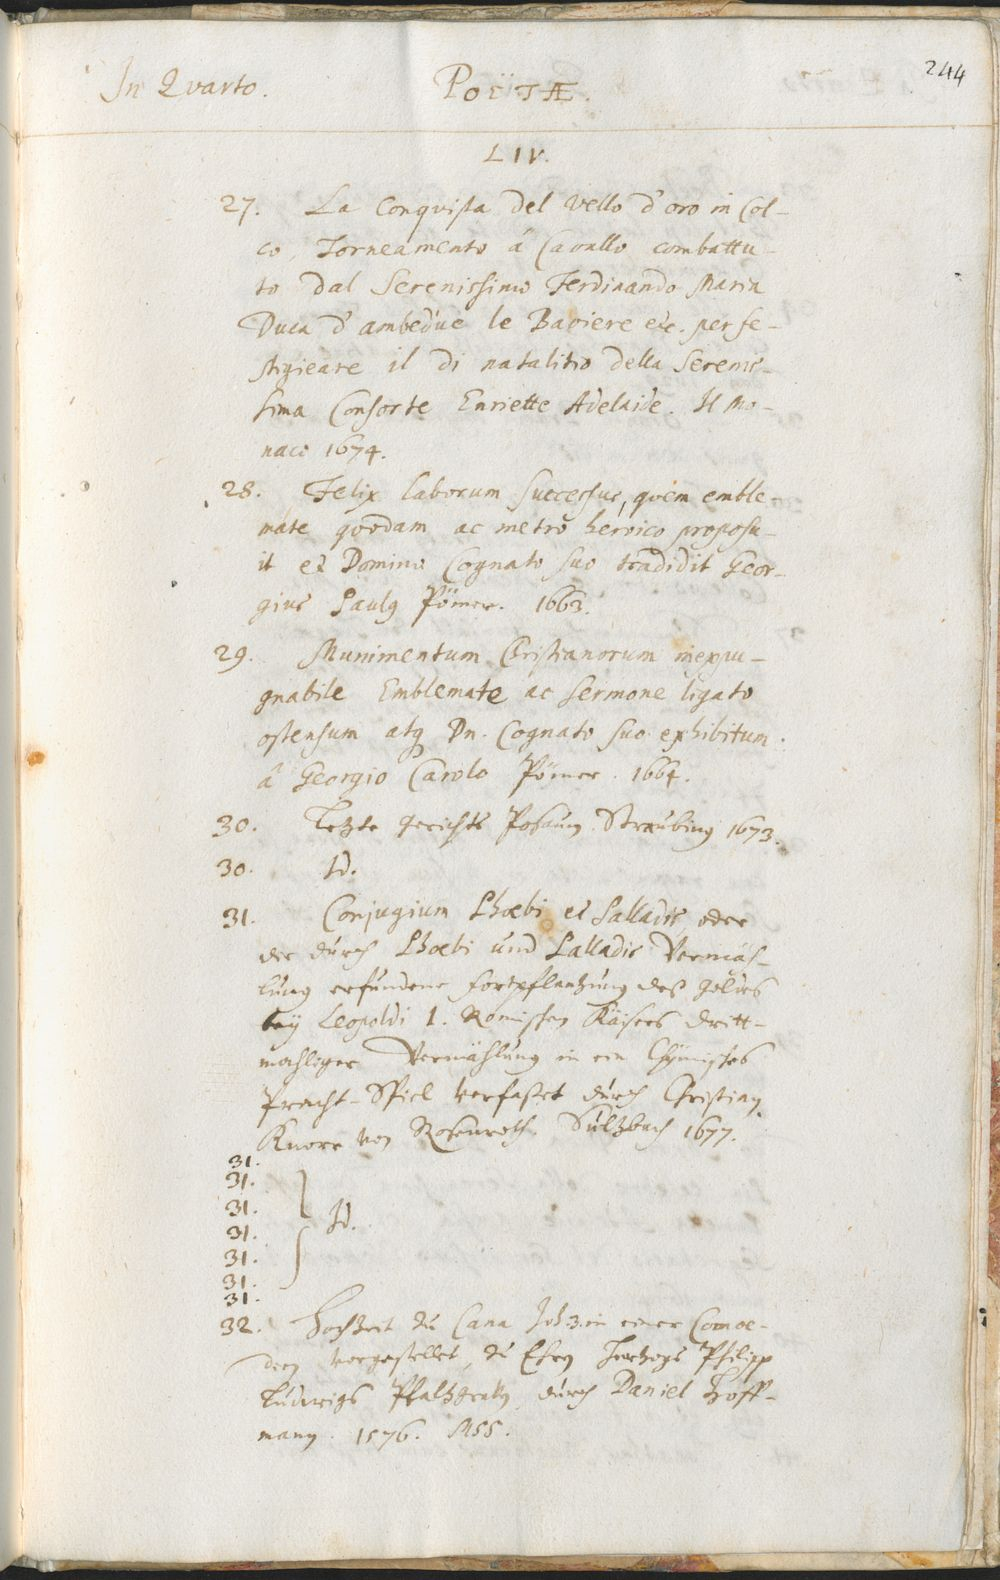 In Qvarto. POËTÆ. 244
LIV.
27. La Conqvista del Vello d'oro in Col-
co, Torneamento â Cavallo combattu-
to dal Serenissimo Ferdinando Maria
Duca d'ambedue le Baviere etc. per fe-
stigieare il di natalitio della Serenis-
sima Consorte Enriette Adelaide. Il Mo-
naco 1674.
28. Felix laborum successus, qvem emble-
mate qvodam ac metro heroico proposu-
it et Domino Cognato suo tradidit Geor-
gius Paulq Pömer. 1663.
29. Munimentum Christianorum inexpu-
gnabile Emblemate ac sermone ligato
ostensum atq Dn. Cognato suo exhibitum
â Georgio Carolo Pömer. 1664.
30. Letzte Gerichts Posaun. Straubing 1673.
30. Id.
31. Conjugium Phœbi et Palladis, oder
die durch Phœbi und Palladis Vermäh-
lung erfundene Fortpflantzung deß Goldes
bey Leopoldi I. Römischen Käisers dritt-
mahliger Vermählung in ein Chÿmisches
Pracht-Spiel verfasset durch Christian
Knorr von Rosenroth. Sultzbach 1677.
31.
31.
31. Id.
31.
31.
31.
31.
32. Hochzeit zu Cana Joh. 3. in einer Comoe-
dien vorgestellet, zu Ehren Hertzogs Philipp
Ludwigs Pfaltzgraven durch Daniel Hoff-
mann. 1576. MSS.